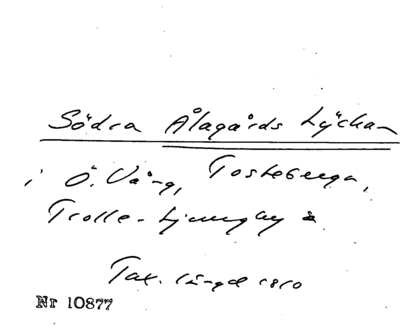 Södra Ålagårds Lyckan
i Ö. Vång, Tosteberga,
Trolle-Ljungby s.
Tax. längd 1810
Nr 10877